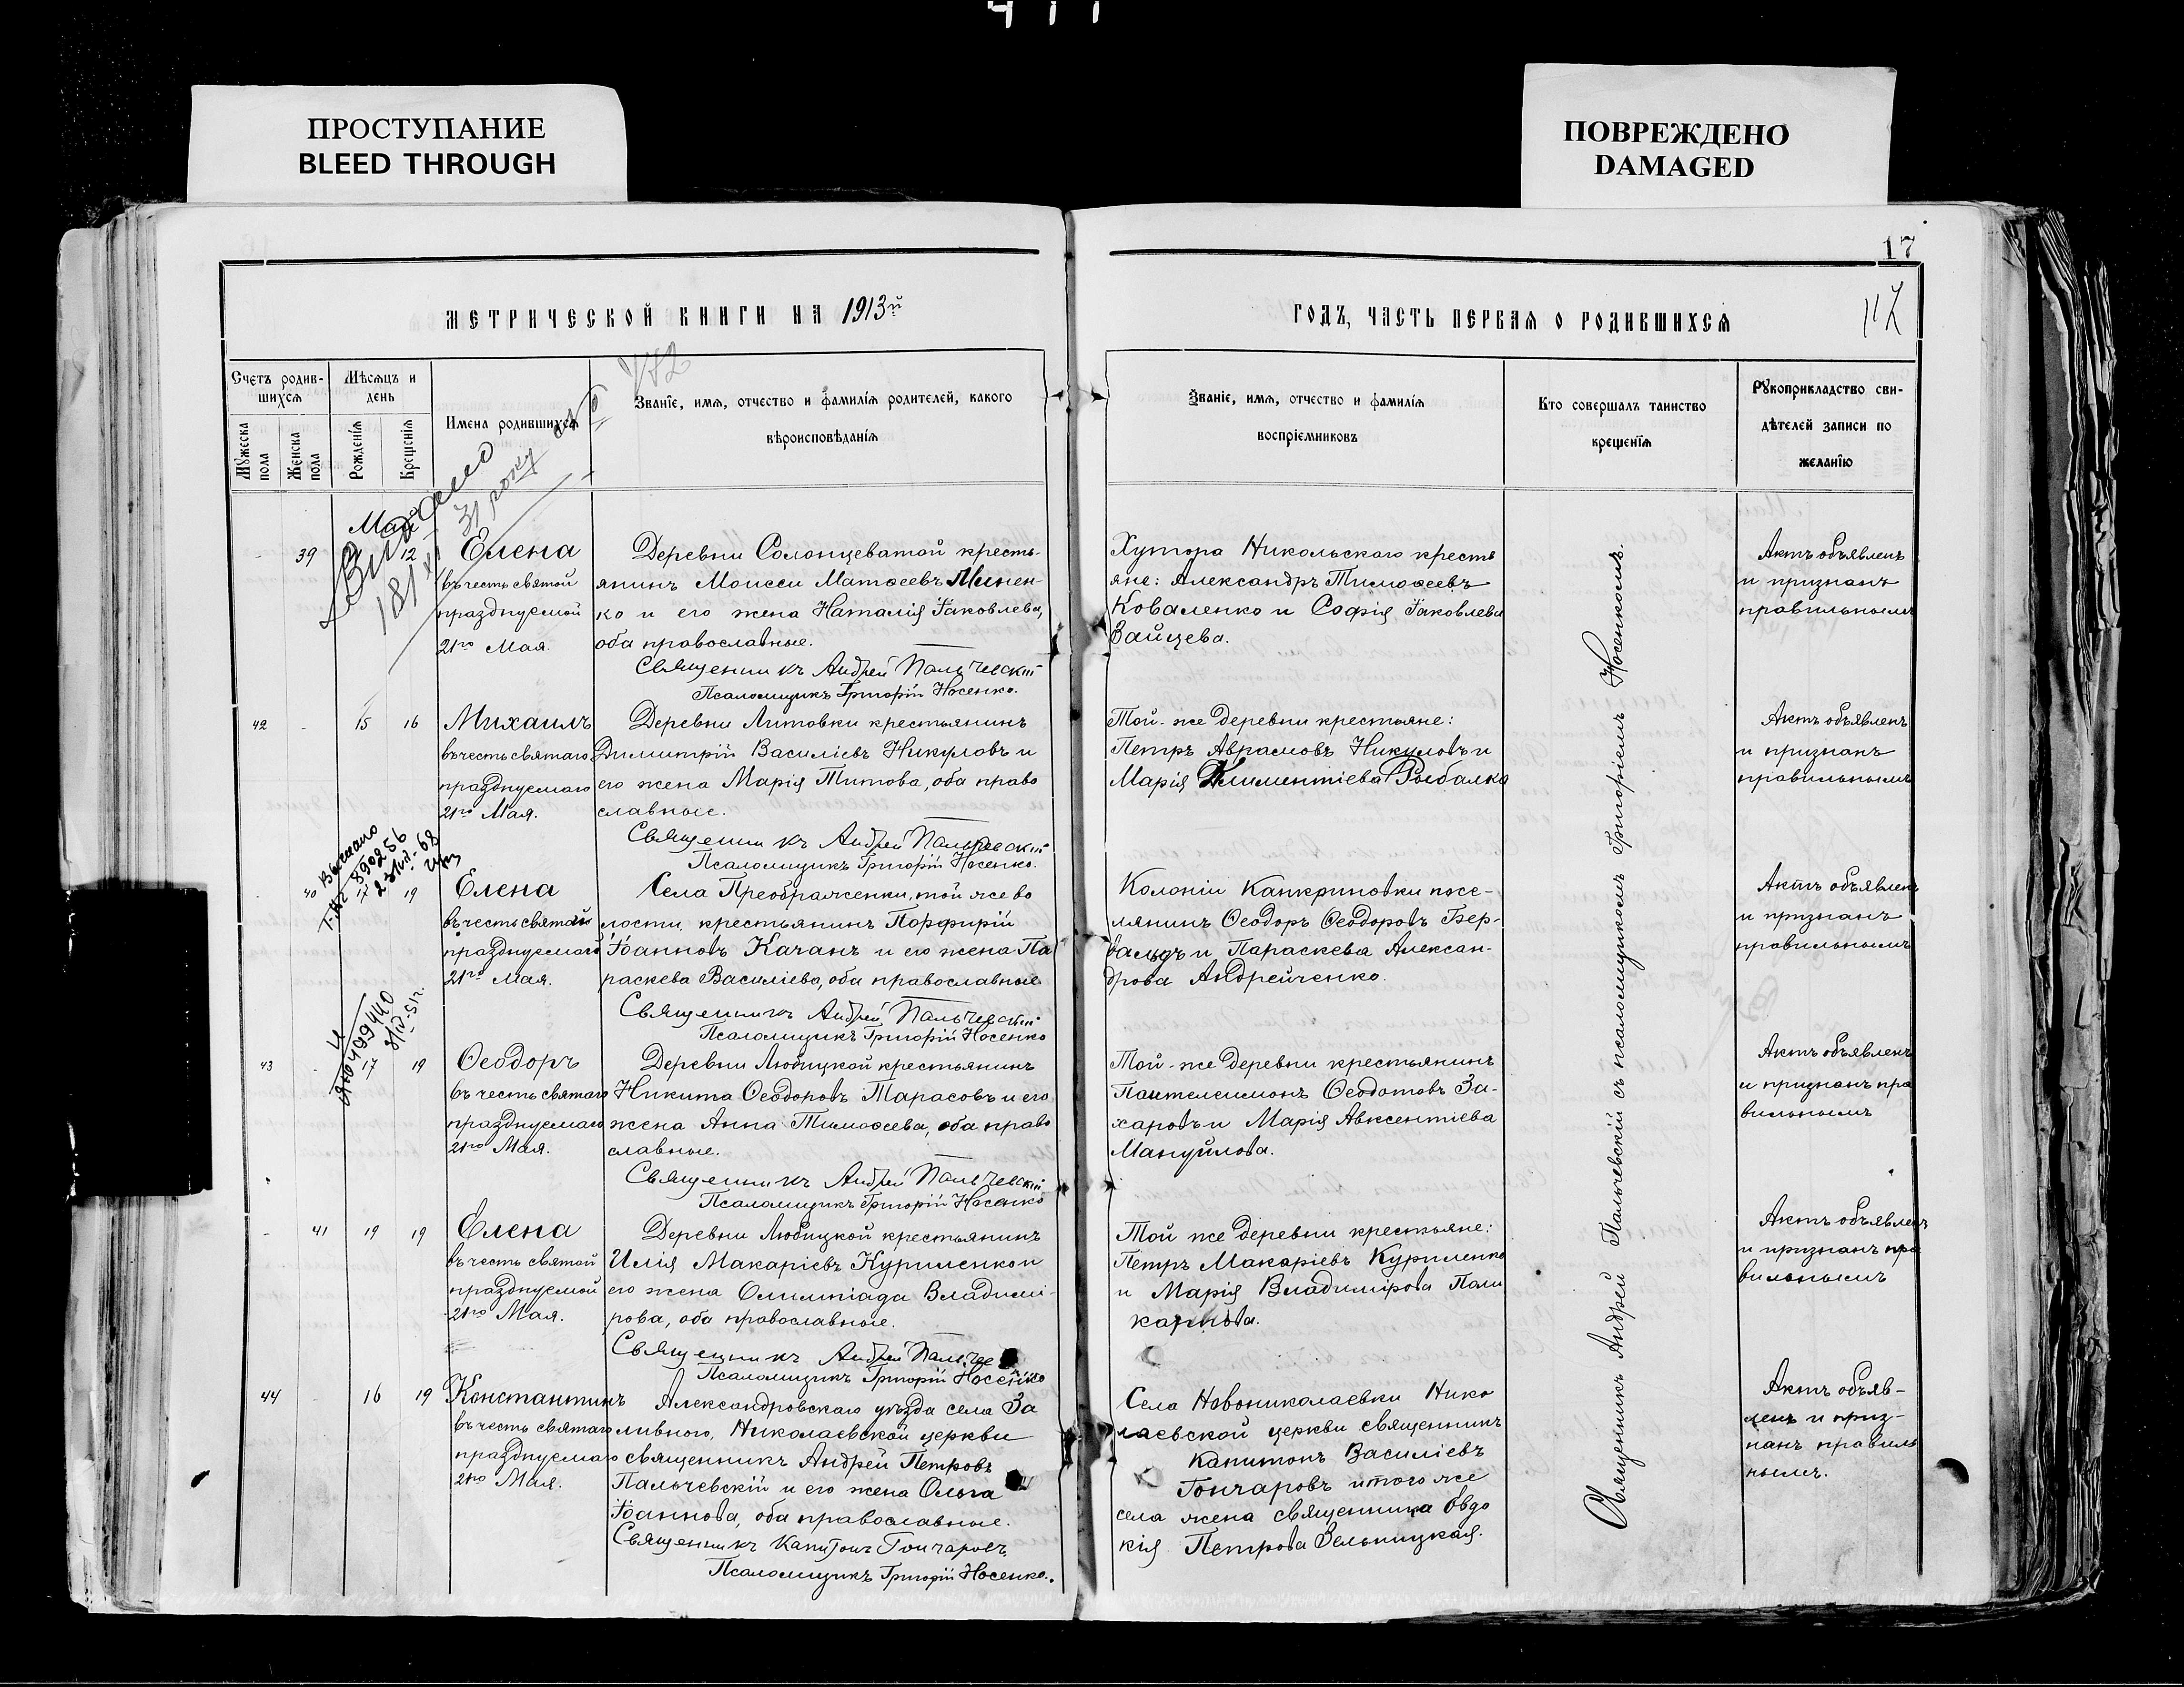 411
ПРОСТУПАНИЕ
BLEED THROUGH
ПОВРЕЖДЕНО
DAMAGED
17
117
МЕТРИЧЕСКОЙ КНИГИ НА 1913й
ГОДЪ, ЧАСТЬ ПЕРВАЯ О РОДИВШИХСЯ
Счетъ родив-
шихся
Мужеска пола
Женска пола
Мѣсяцъ и
день
Рожденія
Крещенія
Имена родившихся
Званіе, имя, отчество и фамилія родителей, какого
вѣроисповѣданія
Званіе, имя, отчество и фамилія
воспріемниковъ
Кто совершалъ таинство
крещенія
Рукоприкладство сви-
дѣтелей записи по
желанію
Май
39
12
Елена
въ честь святой
празднуемой
21го Мая.
Деревни Солонцеватой кресть-
янинъ Моисей Матѳеевъ Минен-
ко и его жена Наталія Іаковлева,
оба православные.
Священникъ Андрей Пальчевскій
Псаломщикъ Григорій Носенко.
Хутора Никольскаго кресть
яне: Александръ Тимоѳеевъ
Коваленко и Софія Іаковлева
Зайцева.
Актъ объявленъ
и признанъ
правильнымъ
42
15
16
Михаилъ
въ честь святаго
празднуемаго
21го Мая.
Деревни Литовки крестьянинъ
Димитрій Василіевъ Никуловъ и
его жена Марія Титова, оба право
славные.
Священникъ Андрей Пальчевскій
Псаломщикъ Григорій Носенко.
Той-же деревни крестьяне:
Петръ Аврамовъ Никуловъ и
Марія Климентіева Рыбалко
Актъ объявленъ
и признанъ
правильнымъ
40
17
19
Елена
въ честь святой
празднуемаго
21го Мая.
Села Преображенки, той же во
лости, крестьянинъ Порфирій
Іоанновъ Качанъ и его жена Па
раскева Василіева, оба православные
Священникъ Андрей Пальчевскій
Псаломщикъ Григорій Носенко
Колоніи Канкриновки посе-
лянинъ Ѳеодоръ Ѳеодоровъ Бер-
вальдъ и Параскева Алексан-
дрова Андрейченко.
Актъ объявленъ
и признанъ
правильнымъ
43
17
19
Ѳеодоръ
въ честь святаго
празднуемаго
21го Мая.
Деревни Любицкой крестьянинъ
Никита Ѳеодоровъ Тарасовъ и его
жена Анна Тимоѳеева, оба право
славные.
Священникъ Андрей Пальчевскій
Псаломщикъ Григорій Носенко
Той-же деревни крестьянинъ
Пантелеимонъ Ѳеодотовъ За-
харовъ и Марія Авксентіева
Мануйлова.
Актъ объявленъ
и признанъ пра
вильнымъ
41
19
19
Елена
въ честь святой
празднуемой
21го Мая.
Деревни Любицкой крестьянинъ
Илія Макаріевъ Куриленко и
его жена Олимпіада Владимі-
рова, оба православные.
Священникъ Андрей Пальчев
Псаломщикъ Григорій Носенко
Той же деревни крестьяне:
Петръ Макаріевъ Куриленко
и Марія Владимірова Поли
карпова.
Актъ объявленъ
и признанъ пра
вильнымъ
44
16
19
Константинъ
въ честь святаго
празднуемаго
21го Мая.
Александровскаго уѣзда села За
ливного, Николаевской церкви
священникъ Андрей Петровъ
Пальчевскій и его жена Ольга
Іоаннова, оба православные.
Священникъ Капитонъ Гончаровъ
Псаломщикъ Григорій Носенко.
Села Новониколаевки Нико
лаевской церкви священникъ
Капитонъ Василіевъ
Гончаровъ и того же
села жена священника Евдо
кія Петрова Зельницкая.
Актъ объяв-
ленъ и приз-
нанъ правиль
нымъ.
Священникъ Андрей Пальчевскій съ псаломщикомъ Григоріемъ Носенкомъ.